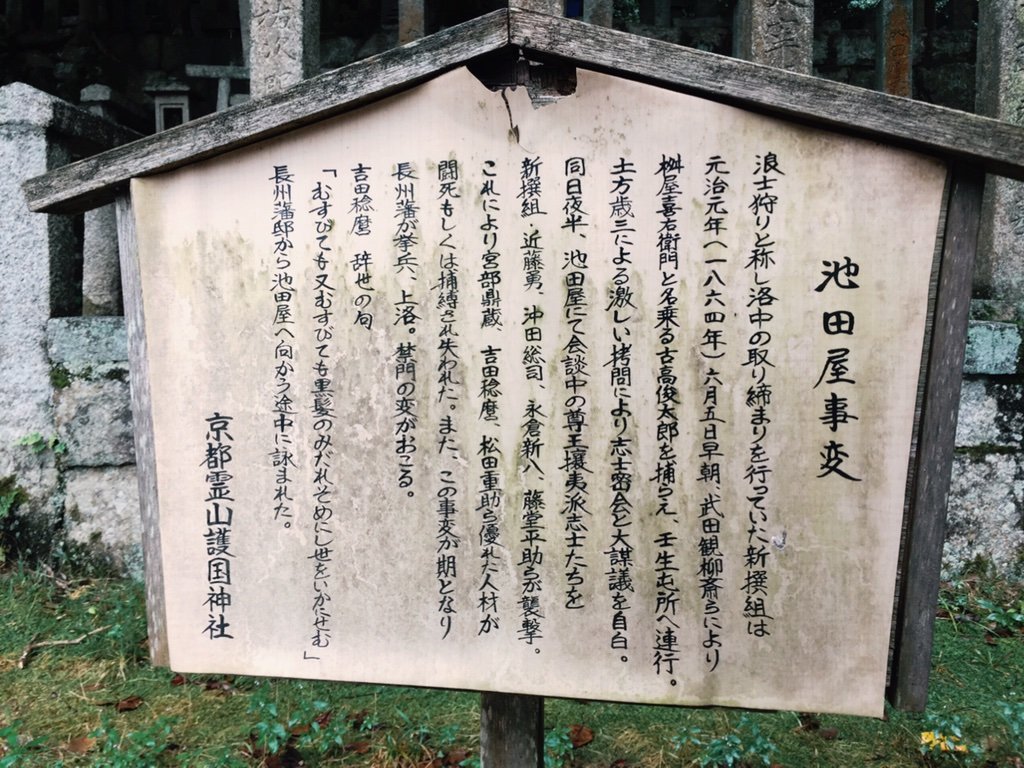 池田屋事変
浪士狩りと称し洛中の取り締まりを行っていた新撰組は
元治元年（一八六四年）六月五日早朝、武田観柳斎らにより
桝屋喜右衛門と名乗る古高俊太郎を捕らえ、壬生屯所へ連行。
土方歳三による激しい拷問により志士密会と大謀議を自白。
同日夜半、池田屋にて会談中の尊王攘夷派志士たちを
新撰組・近藤勇、沖田総司、永倉新八、藤堂平助らが襲撃。
これにより宮部鼎蔵、吉田稔麿、松田重助ら優れた人材が
闘死もしくは捕縛され失われた。また、この事変が期となり
長州藩が挙兵、上洛。禁門の変がおこる。
吉田稔麿　辞世の句
「むすびても又むすびても黒髪のみだれそめにし世をいかにせむ」
長州藩邸から池田屋へ向かう途中に詠まれた。
京都霊山護国神社